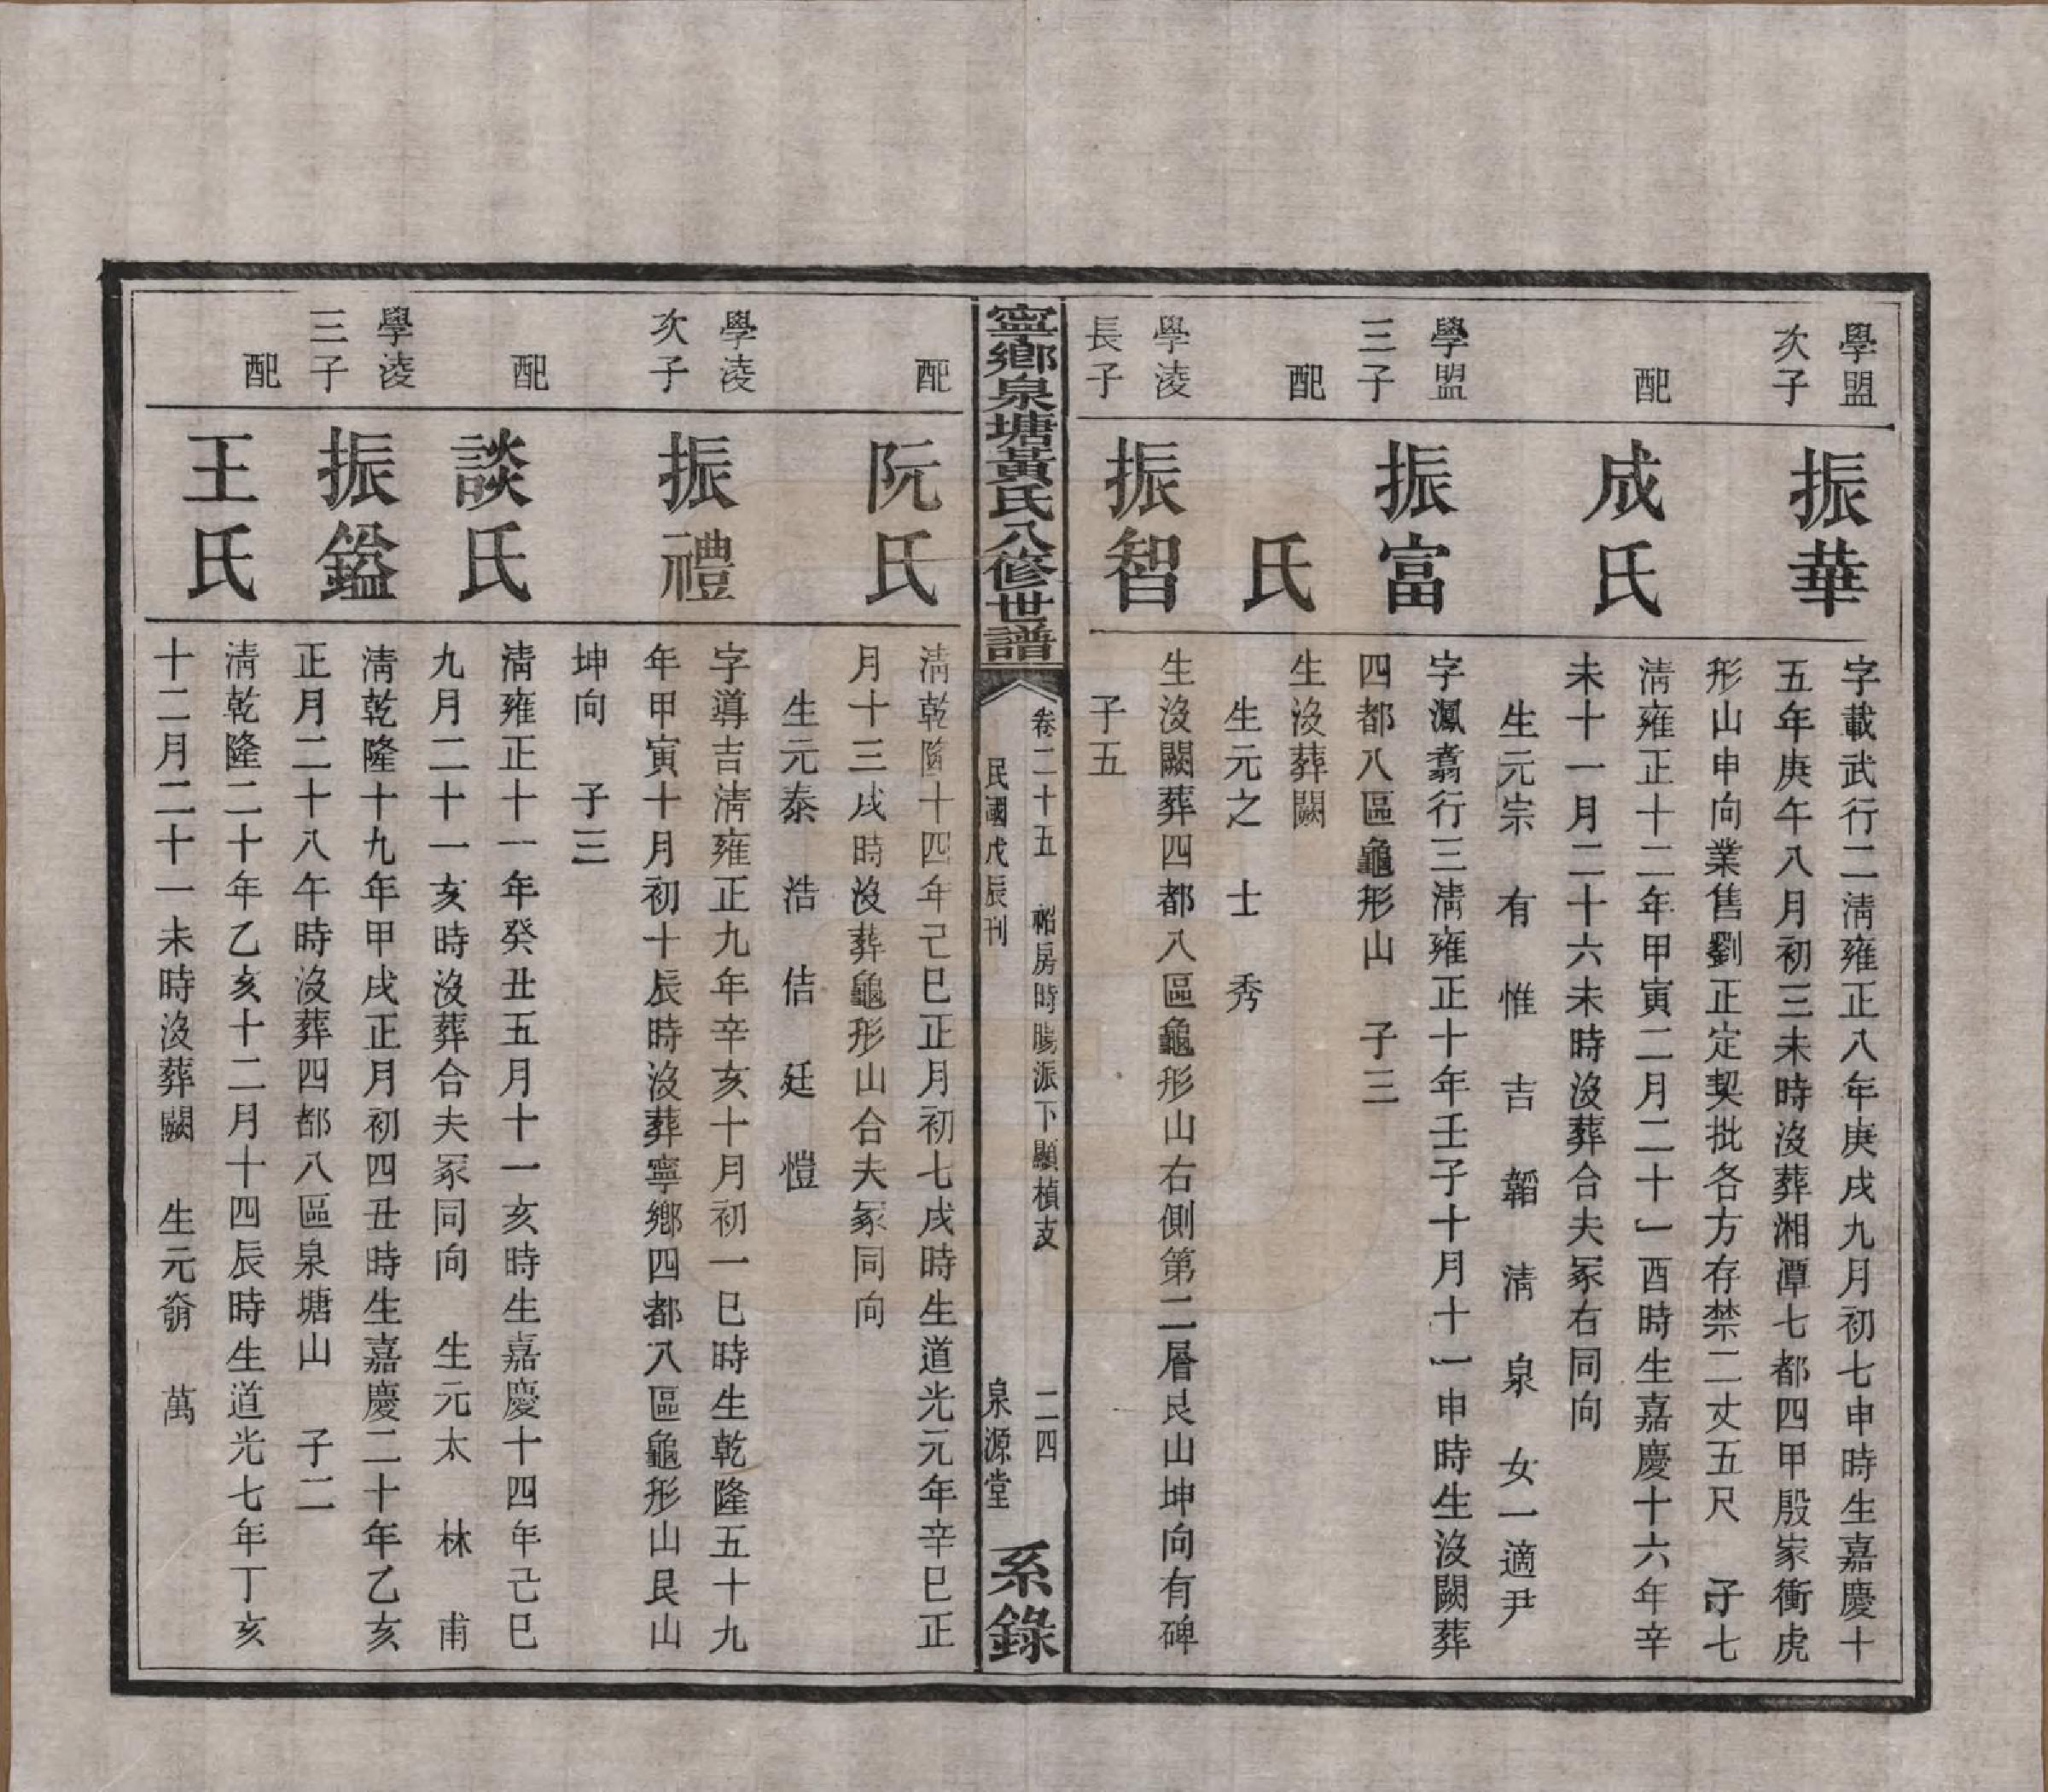 學盟
次子
振華
字載武行二淸雍正八年庚戌九月初七申時生嘉慶十
五年庚午八月初三未時沒葬湘潭七都四甲殷家衝虎
形山申向業售劉正定契批各方存禁二丈五尺 子七
配
成氏
淸雍正十二年甲寅二月二十一酉時生嘉慶十六年辛
未十一月二十六未時沒葬合夫冢右同向
生元宗 有 惟 吉 韜 淸 泉 女一適尹
學盟
三子
振富
字鳳翥行三淸雍正十年壬子十月十一申時生沒闕葬
四都八區龜形山 子三
配
氏
生沒葬闕
生元之 士 秀
學淩
長子
振智
生沒闕葬四都八區龜形山右側第二層艮山坤向有碑
子五
寧鄉泉塘黃氏八修世譜
卷二十五 昭房時暘派下顯楨支 二四
民國戊辰刊 泉源堂
系錄
配
阮氏
淸乾隆十四年己巳正月初七戌時生道光元年辛巳正
月十三戌時沒葬龜形山合夫冢同向
生元泰 浩 佶 廷 愷
學淩
次子
振禮
字導吉淸雍正九年辛亥十月初一巳時生乾隆五十九
年甲寅十月初十辰時沒葬寧鄉四都八區龜形山艮山
坤向 子三
配
談氏
淸雍正十一年癸丑五月十一亥時生嘉慶十四年己巳
九月二十一亥時沒葬合夫冢同向 生元太 林 甫
學淩
三子
振鎰
淸乾隆十九年甲戌正月初四丑時生嘉慶二十年乙亥
正月二十八午時沒葬四都八區泉塘山 子二
配
王氏
淸乾隆二十年乙亥十二月十四辰時生道光七年丁亥
十二月二十一未時沒葬闕 生元 萬